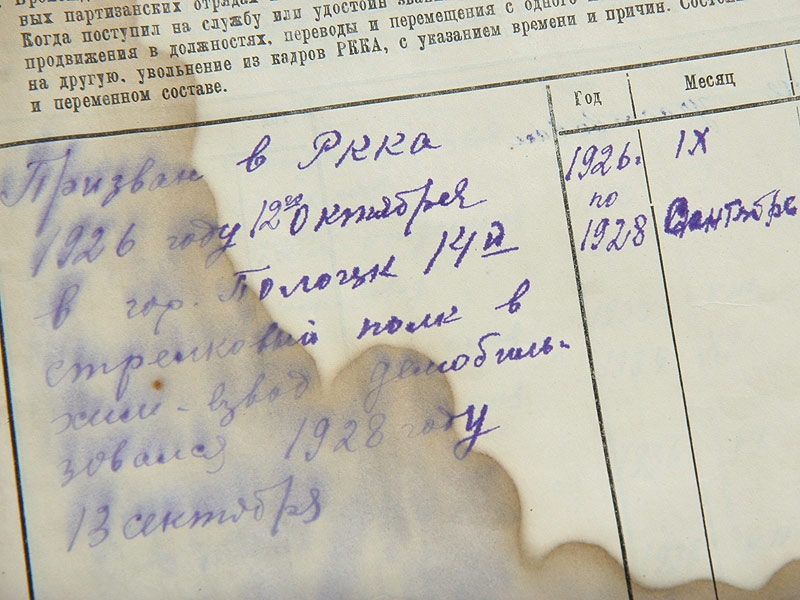 ных партизанских отрядах
Когда поступил на службу или удостоен
продвижения в должностях, переводы и перемещения с одного
на другую, увольнение из кадров РККА, с указанием времени и причин.
и переменном составе.
Год Месяц
Призван в РККА
1926 году 12го Октября
в гор. Полоцк 14й
стрелковый полк в
хим-взвод демобили-
зовался 1928 году
13 сентября
1926. IX
по
1928 Сентябре